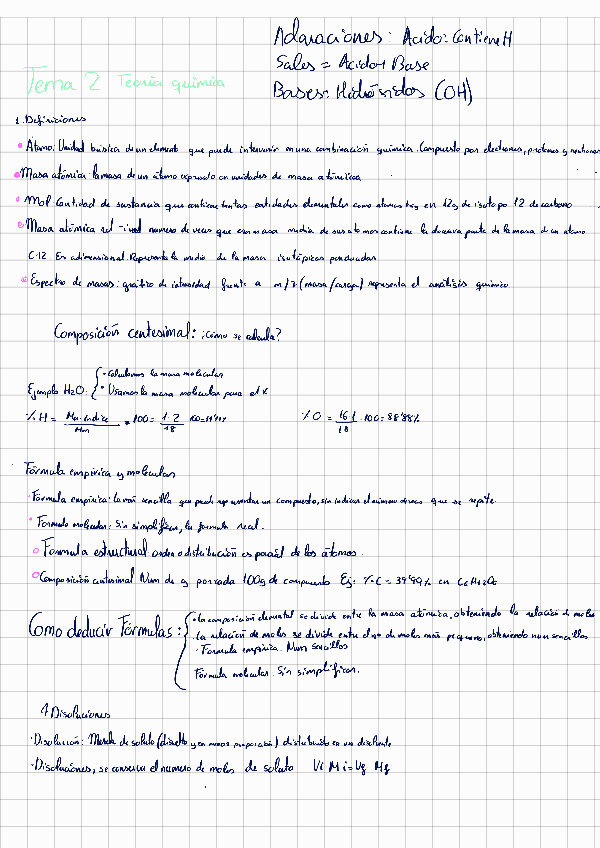 Aclaraciones: Acido: Contiene H
Sales = Acido + Base
Bases: Hidróxidos (OH)
Tema 2 Teoría química
1. Definiciones
Atomo: Unidad básica de un elemento que puede intervenir en una combinación química. Compuesto por electrones, protones y neutrones
Masa atómica: la masa de un átomo expresado en unidades de masa atómica
Mol: Cantidad de sustancia que contiene tantas entidades elementales como atomos hay en 12g de isotopo 12 de carbono
Masa atómica rel numero de veces que esa masa media de sus atomos contiene la doceava parte de la masa de un atomo
C-12 Es adimensional. Representa la media de la masa isotópicas ponderadas
Espectro de masas: grafico de intensidad frente a m/z (masa/carga) representa el análisis químico
Composición centesimal: ¿Cómo se calcula?
• Calculamos la masa molecular
Ejemplo H2O: • Usamos la masa molecular para el %
% H = Ma·indice / Mm * 100 = 1·2 / 18 · 100 = 11'11%
% O = 16·1 / 18 · 100 = 88'88%
Fórmula empírica y molecular
Fórmula empírica: la más sencilla que puede representar un compuesto, sin indicar el número de veces que se repite
Formula molecular: Sin simplificar, la formula real.
Formula estructural orden o distribución espacial de los átomos.
Composición centesimal Num de g por cada 100g de compuesto Ej: % C = 39'99% en C6H12O6
• la composición elemental se divide entre la masa atómica, obteniendo la relación de moles
Como deducir Fórmulas: • La relación de moles se divide entre el nº de moles más pequeno, obteniendo num sencillos
• Formula empírica. Num sencillos
Fórmula molecular. Sin simplificar.
4 Disoluciones
• Disolución: Mezcla de soluto (disuelto y en menor proporción) distribuido en un disolvente
• Disoluciones, se conserva el numero de moles de soluto Vi Mi = Vf Mf